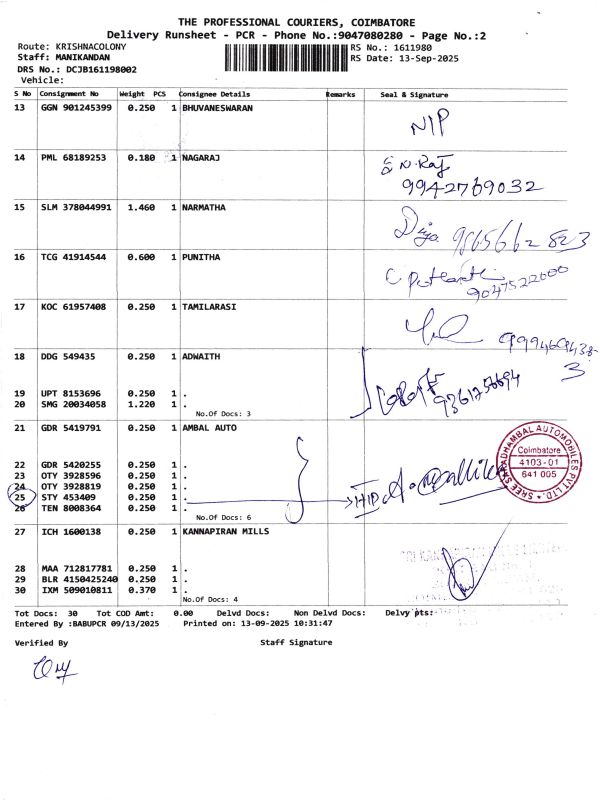 THE PROFESSIONAL COURIERS, COIMBATORE
Delivery Runsheet - PCR - Phone No.:9047080280 - Page No.:2
Route: KRISHNACOLONY RS No.: 1611980
Staff: MANIKANDAN RS Date: 13-Sep-2025
DRS No.: DCJB161198002
Vehicle:
S No Consignment No Weight PCS Consignee Details Remarks Seal & Signature
13 GGN 901245399 0.250 1 BHUVANESWARAN
N/P
14 PML 68189253 0.180 1 NAGARAJ
N.Raj
9942769032
15 SLM 378044991 1.460 1 NARMATHA
Divya 9865662823
16 TCG 41914544 0.600 1 PUNITHA
9047522000
17 KOC 61957408 0.250 1 TAMILARASI
18 DDG 549435 0.250 1 ADWAITH
19 UPT 8153696 0.250 1 .
9361256694
20 SMG 20034058 1.220 1 .
No.Of Docs: 3
21 GDR 5419791 0.250 1 AMBAL AUTO
SREE SARADHAMBAL AUTOMOBILES PVT LTD.
Coimbatore
4103-01
641 005
22 GDR 5420255 0.250 1 .
23 OTY 3928596 0.250 1 .
24 OTY 3928819 0.250 1 .
25 STY 453409 0.250 1 .
26 TEN 8008364 0.250 1 .
No.Of Docs: 6
27 ICH 1600138 0.250 1 KANNAPIRAN MILLS
28 MAA 712817781 0.250 1 .
29 BLR 4150425240 0.250 1 .
30 IXM 509010811 0.370 1 .
No.Of Docs: 4
Tot Docs: 30 Tot COD Amt: 0.00 Delvd Docs: Non Delvd Docs: Delvy pts:
Entered By :BABUPCR 09/13/2025 Printed on: 13-09-2025 10:31:47
Verified By Staff Signature